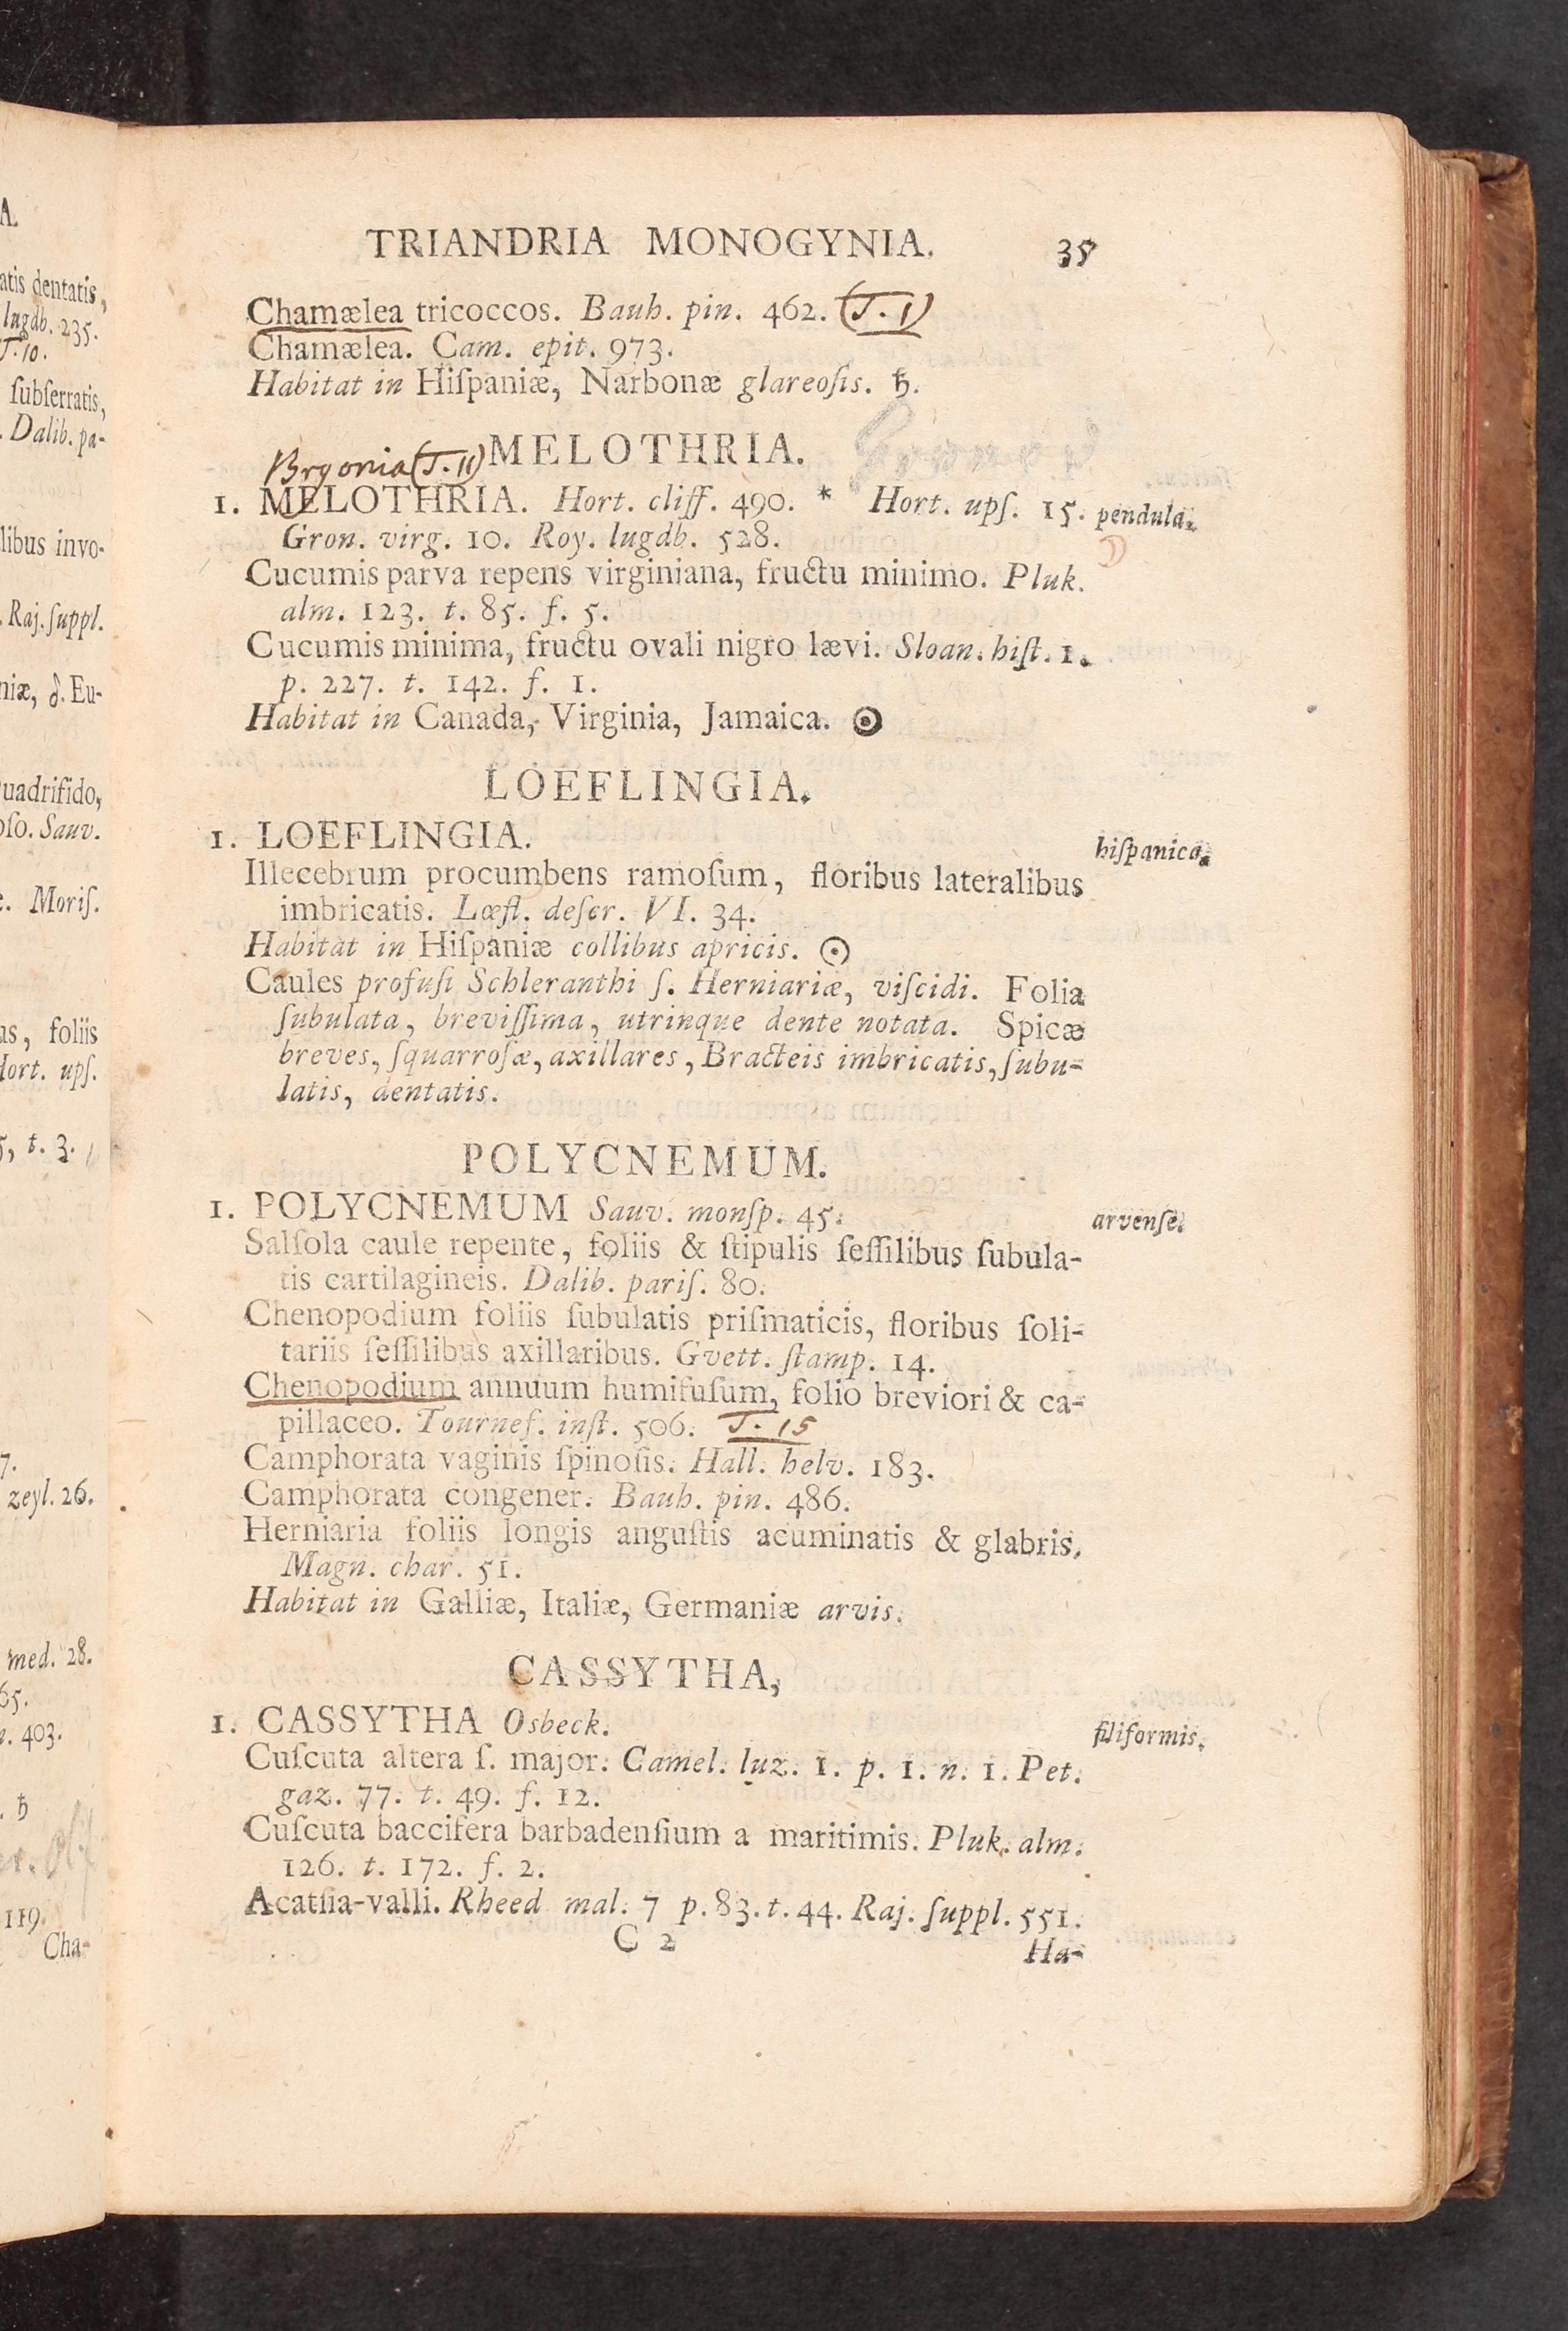 A.
atis dentatis,
lugdb. 235.
T. 10.
ſubſerratis,
. Dalib. pa-
libus invo-
. Raj. ſuppl.
niæ, ♂. Eu-
quadrifido,
oſo. Sauv.
e. Moriſ.
us, foliis
Hort. upſ.
5, t. 3.
7.
zeyl. 26.
med. 28.
65.
403.
. ♄
119.
Cha-
TRIANDRIA MONOGYNIA. 35
Chamælea tricoccos. Bauh. pin. 462. (T. 1)
Chamælea. Cam. epit. 973.
Habitat in Hiſpaniæ, Narbonæ glareoſis. ♄.
MELOTHRIA.
Bryonia (T. 11)
1. MELOTHRIA. Hort. cliff. 490. * Hort. upſ. 15. pendula.
Gron. virg. 10. Roy. lugdb. 528.
Cucumis parva repens virginiana, fructu minimo. Pluk.
alm. 123. t. 85. f. 5.
Cucumis minima, fructu ovali nigro lævi. Sloan. hiſt. 1.
p. 227. t. 142. f. 1.
Habitat in Canada, Virginia, Jamaica. ☉
LOEFLINGIA.
1. LOEFLINGIA. hiſpanica.
Illecebrum procumbens ramoſum, floribus lateralibus
imbricatis. Lœfl. deſcr. VI. 34.
Habitat in Hiſpaniæ collibus apricis. ☉
Caules profuſi Schleranthi ſ. Herniariæ, viſcidi. Folia
ſubulata, breviſſima, utrinque dente notata. Spicæ
breves, ſquarroſæ, axillares, Bracteis imbricatis, ſubu-
latis, dentatis.
POLYCNEMUM.
1. POLYCNEMUM Sauv. monſp. 45. arvenſe.
Salſola caule repente, foliis & ſtipulis ſeſſilibus ſubula-
tis cartilagineis. Dalib. pariſ. 80.
Chenopodium foliis ſubulatis priſmaticis, floribus ſoli-
tariis ſeſſilibus axillaribus. Gvett. ſtamp. 14.
Chenopodium annuum humifuſum, folio breviori & ca-
pillaceo. Tournef. inſt. 506. T. 15
Camphorata vaginis ſpinoſis. Hall. helv. 183.
Camphorata congener. Bauh. pin. 486.
Herniaria foliis longis anguſtis acuminatis & glabris.
Magn. char. 51.
Habitat in Galliæ, Italiæ, Germaniæ arvis.
CASSYTHA,
1. CASSYTHA Osbeck. filiformis.
Cuſcuta altera ſ. major. Camel. luz. 1. p. 1. n. 1. Pet.
gaz. 77. t. 49. f. 12.
Cuſcuta baccifera barbadenſium a maritimis. Pluk. alm.
126. t. 172. f. 2.
Acatſia-valli. Rheed mal. 7 p. 83. t. 44. Raj. ſuppl. 551.
C 2 Ha-